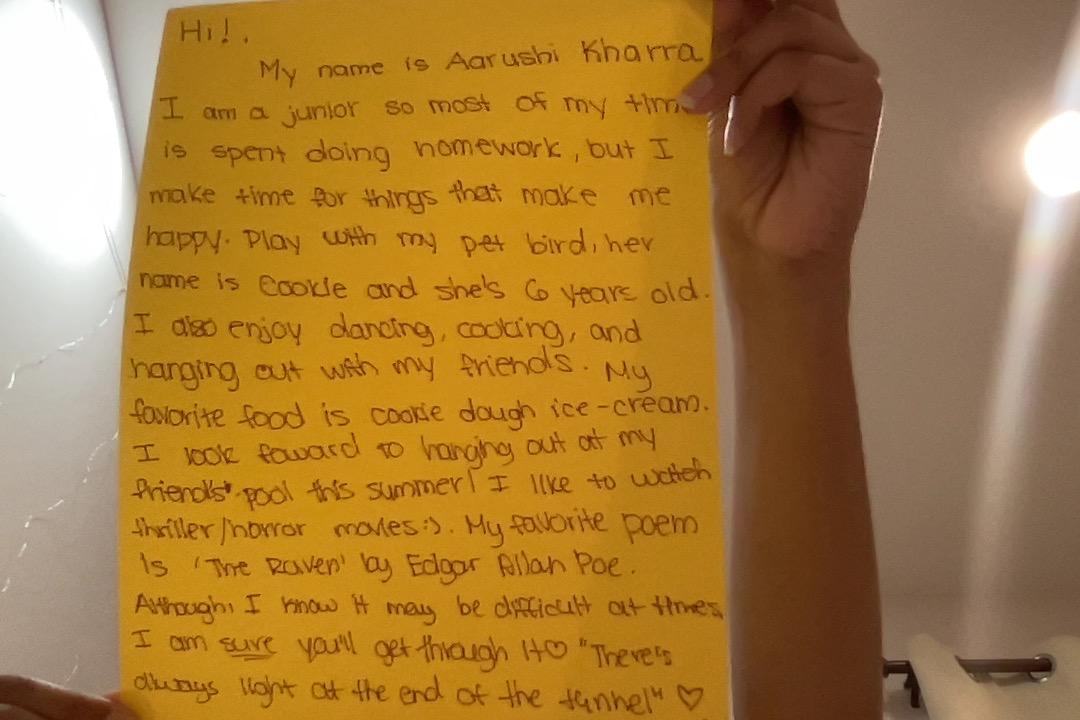 Hi!.
My name is Aarushi Kharra
I am a junior so most of my time
is spent doing homework, but I
make time for things that make me
happy. Play with my pet bird, her
name is Cookie and she's 6 years old.
I also enjoy dancing, cooking, and
hanging out with my friends. My
favorite food is cookie dough ice-cream.
I look foward to hanging out at my
friends' pool this summer! I like to watch
thriller/horror movies:). My favorite poem
is 'The Raven' by Edgar Allan Poe.
Although, I know it may be difficult at times
I am sure you'll get through it♡ "There's
always light at the end of the tunnel" ♡